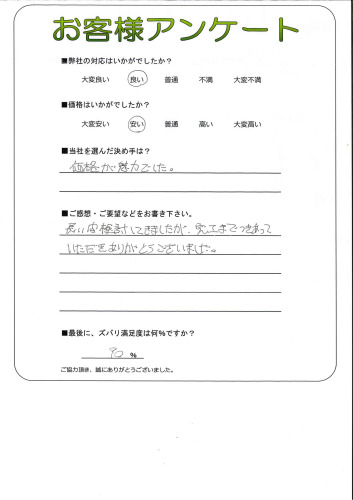 お客様アンケート
■弊社の対応はいかがでしたか？
大変良い 良い 普通 不満 大変不満
■価格はいかがでしたか？
大変安い 安い 普通 高い 大変高い
■当社を選んだ決め手は？
価格が魅力でした。
■ご感想・ご要望などをお書き下さい。
長い間検討してきましたが、完工までつきあって
いただきありがとうございました。
■最後に、ズバリ満足度は何％ですか？
90 ％
ご協力頂き、誠にありがとうございました。